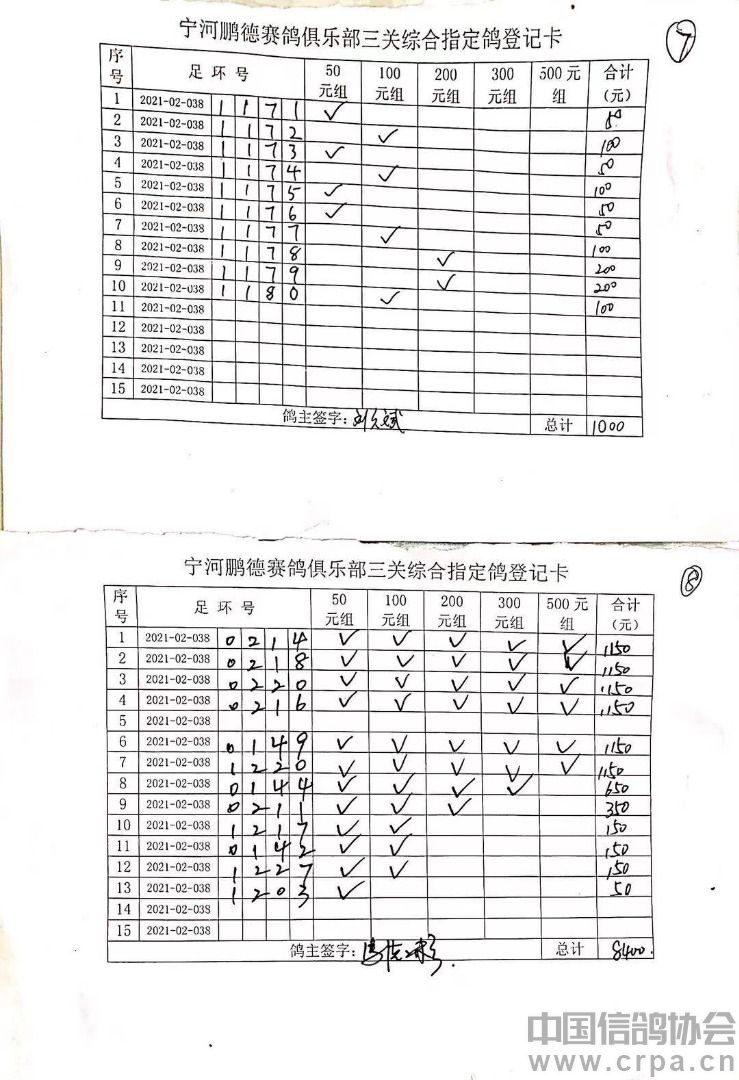 宁河鹏德赛鸽俱乐部三关综合指定鸽登记卡
⑦
序号 足环号 50元组 100元组 200元组 300元组 500元组 合计(元)
1 2021-02-038 1 1 7 1 ✓ 50
2 2021-02-038 1 1 7 2 ✓ 100
3 2021-02-038 1 1 7 3 ✓ 50
4 2021-02-038 1 1 7 4 ✓ 100
5 2021-02-038 1 1 7 5 ✓ 50
6 2021-02-038 1 1 7 6 ✓ 50
7 2021-02-038 1 1 7 7 ✓ 100
8 2021-02-038 1 1 7 8 ✓ 200
9 2021-02-038 1 1 7 9 ✓ 200
10 2021-02-038 1 1 8 0 ✓ 100
11 2021-02-038
12 2021-02-038
13 2021-02-038
14 2021-02-038
15 2021-02-038
鸽主签字: 总计 1000
宁河鹏德赛鸽俱乐部三关综合指定鸽登记卡
⑧
序号 足环号 50元组 100元组 200元组 300元组 500元组 合计(元)
1 2021-02-038 0 2 1 4 ✓ ✓ ✓ ✓ ✓ 1150
2 2021-02-038 0 2 1 8 ✓ ✓ ✓ ✓ ✓ 1150
3 2021-02-038 0 2 2 0 ✓ ✓ ✓ ✓ ✓ 1150
4 2021-02-038 0 2 1 6 ✓ ✓ ✓ ✓ ✓ 1150
5 2021-02-038
6 2021-02-038 0 1 4 9 ✓ ✓ ✓ ✓ ✓ 1150
7 2021-02-038 1 2 2 0 ✓ ✓ ✓ ✓ ✓ 1150
8 2021-02-038 0 1 4 4 ✓ ✓ ✓ ✓ 650
9 2021-02-038 0 2 1 1 ✓ ✓ ✓ 350
10 2021-02-038 1 2 1 7 ✓ ✓ 150
11 2021-02-038 0 1 4 2 ✓ ✓ 150
12 2021-02-038 1 2 2 7 ✓ ✓ 150
13 2021-02-038 1 2 0 3 ✓ 50
14 2021-02-038
15 2021-02-038
鸽主签字: 总计 8400.
中国信鸽协会
www.crpa.cn